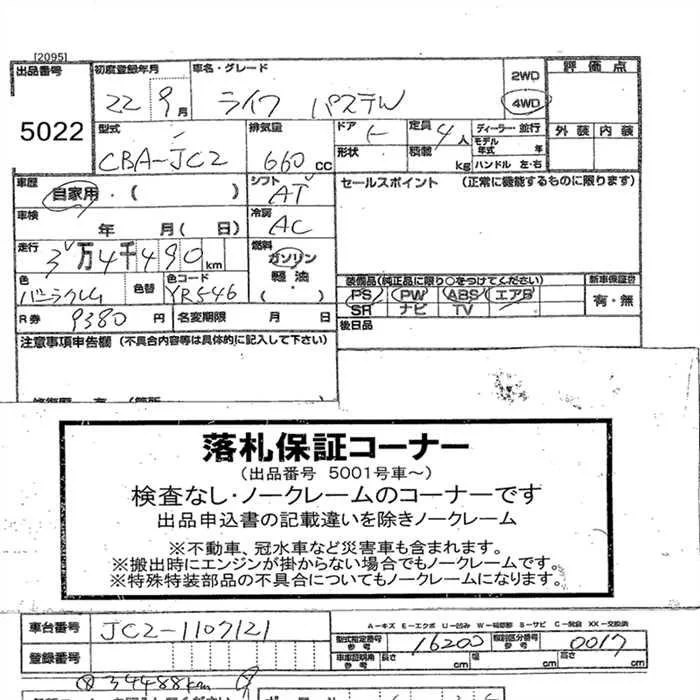 [2095]
出品番号 初度登録年月 車名・グレード 2WD 評価点
5022 22 9月 ライフ パステル 4WD
型式 排気量 ドア 定員 4人 ディーラー・並行 外装 内装
CBA-JC2 660cc 形状 積載 kg モデル年式 年 ハンドル 左・右
車歴 自家用・( ) シフト AT セールスポイント (正常に機能するものに限ります)
車検 年 月(日) 冷房 AC
走行 3万4千490km 燃料 ガソリン 軽油 ( )
色 色替 色コード YR546 装備品(純正品に限り○をつけてください) 新車保証書
PS PW ABS エアB 有・無
SR ナビ TV
R券 9380円 名変期限 月 日 後日品
注意事項申告欄 (不具合内容等は具体的に記入して下さい)
落札保証コーナー
(出品番号 5001号車~)
検査なし・ノークレームのコーナーです
出品申込書の記載違いを除きノークレーム
※不動車、冠水車など災害車も含まれます。
※搬出時にエンジンが掛からない場合でもノークレームです。
※特殊特装部品の不具合についてもノークレームになります。
車台番号 JC2-1107121 A-キズ E-エクボ U-凹み S-サビ XX-交換済
登録番号 型式指定番号 参考 16200 類別区分番号 参考 0017
車車証明用 参考 長さ cm 幅 cm 高さ cm
34488km